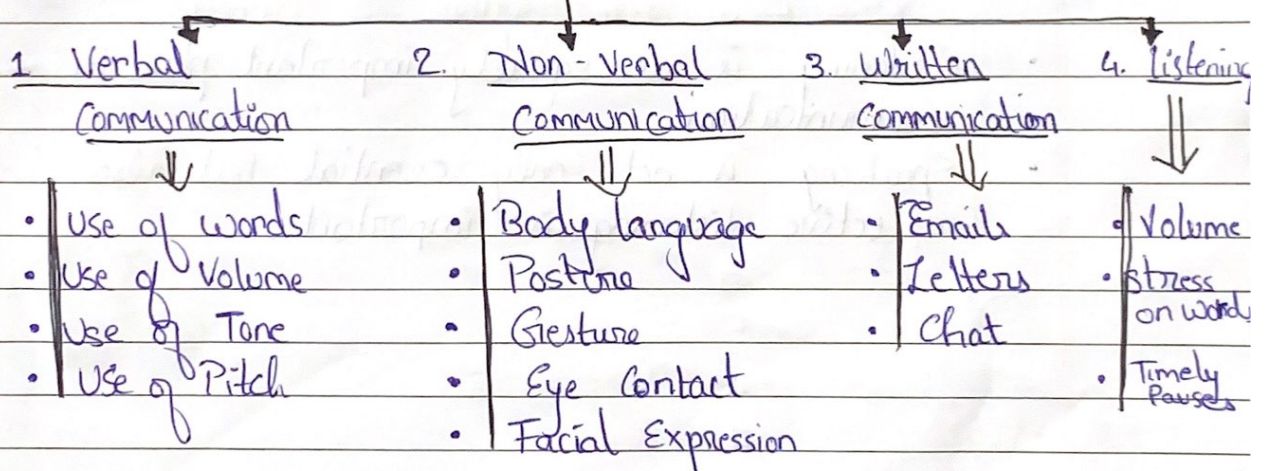 1 Verbal
Communication
• Use of words
• Use of Volume
• Use of Tone
• Use of Pitch
2. Non-Verbal
Communication
• Body language
• Posture
• Gesture
• Eye Contact
• Facial Expression
3. Written
Communication
• Emails
• Letters
• Chat
4. Listening
• Volume
• Stress
on words
• Timely
Pauses